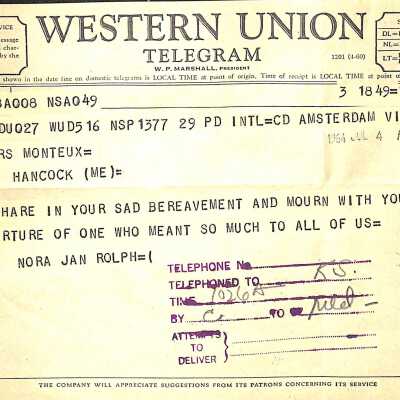 WESTERN UNION
TELEGRAM
W. P. MARSHALL, PRESIDENT
1201 (4-60)
SYMBOLS
DL=
NL=
LT=
shown in the date line on domestic telegrams is LOCAL TIME at point of origin. Time of receipt is LOCAL TIME at point of
BA008 NSA049
3 1849=
DU027 WUD516 NSP1377 29 PD INTL=CD AMSTERDAM VI
RS MONTEUX=
1964 JUL 4
HANCOCK (ME)=
HARE IN YOUR SAD BEREAVEMENT AND MOURN WITH YOU
RTURE OF ONE WHO MEANT SO MUCH TO ALL OF US=
NORA JAN ROLPH=(
TELEPHONE No.
TELEPHONED TO
TIME 1026A
BY C. TO
ATTEMPTS
TO
DELIVER
THE COMPANY WILL APPRECIATE SUGGESTIONS FROM ITS PATRONS CONCERNING ITS SERVICE